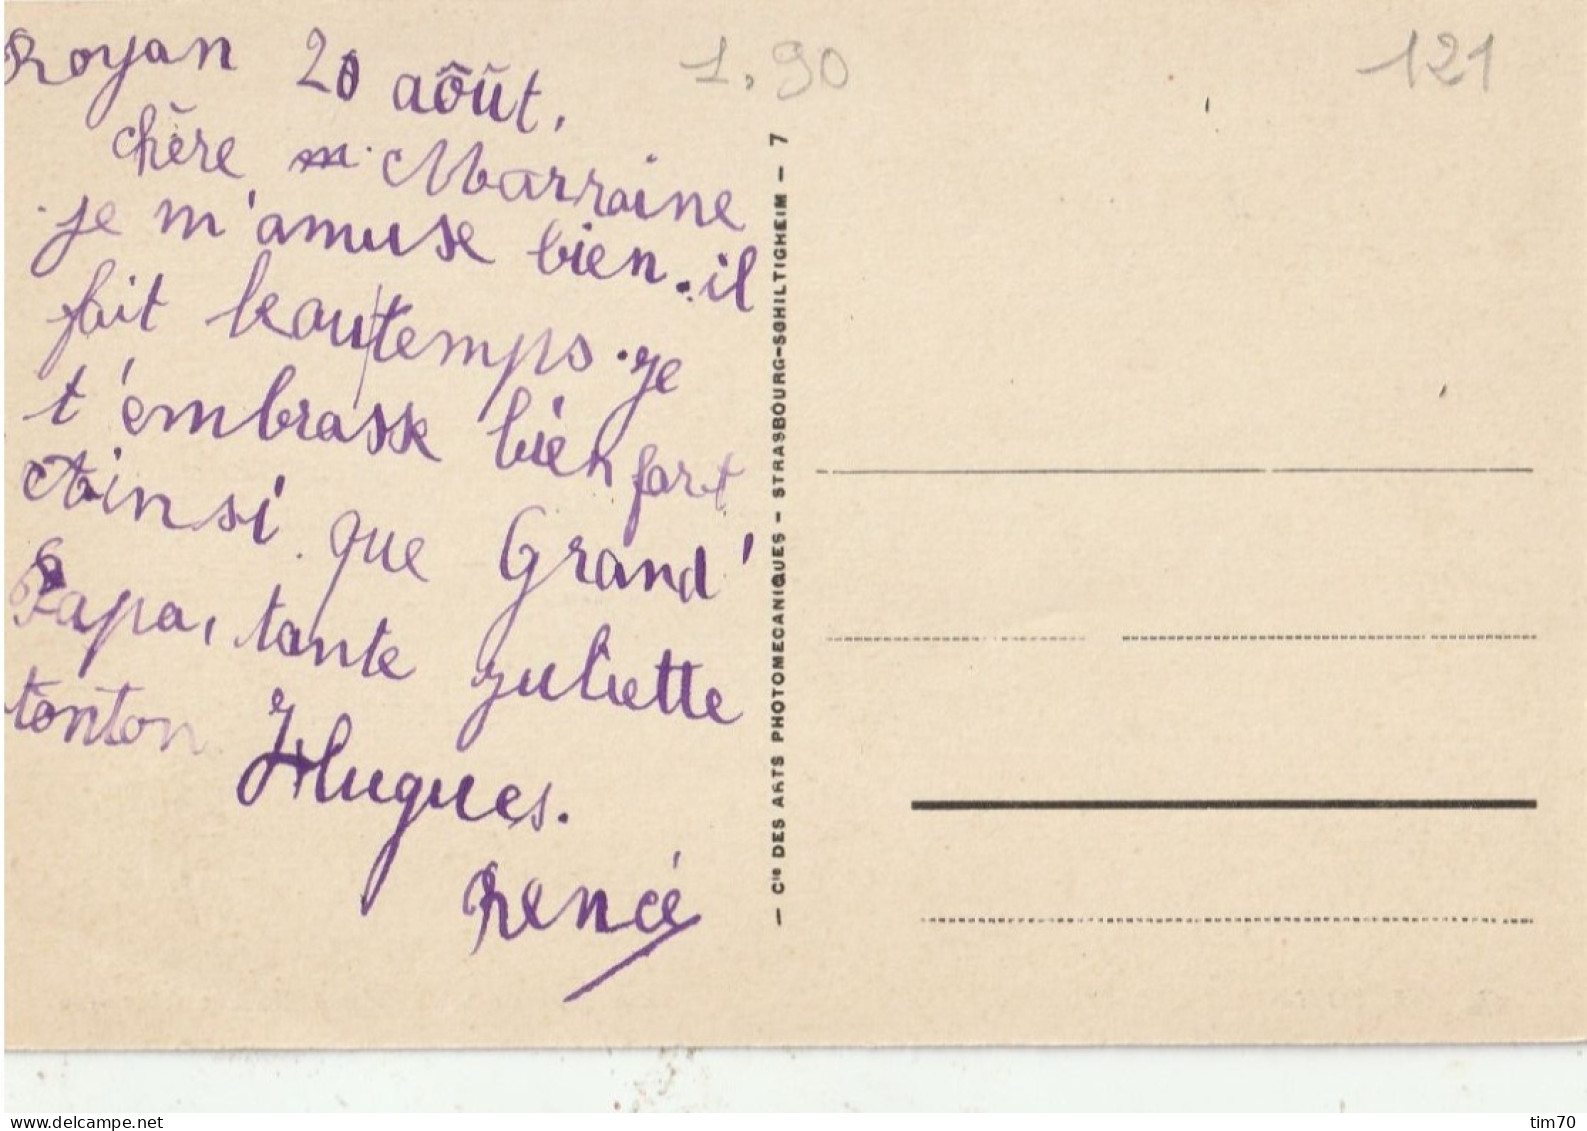 Royan 20 aôût,
chère m Marraine
je m'amuse bien. il
fait beau temps. je
t'embrasse bien fort
Ainsi que Grand'
Papa, tante juliette
tonton Hugues.
René
1,90
121
— Cie DES ARTS PHOTOMECANIQUES — STRASBOURG-SCHILTIGHEIM — 7
www.delcampe.net
tim70